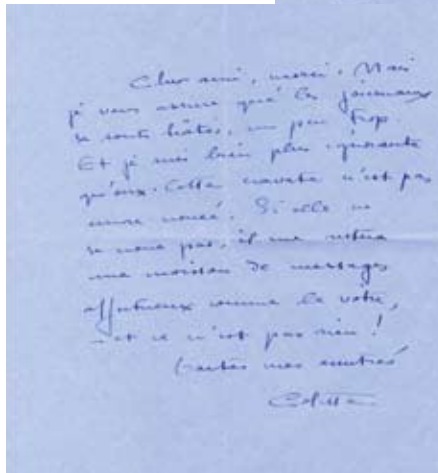 Cher ami, merci. Mais
je vous assure que les journaux
se sont hâtés, un peu trop.
Et je suis bien plus ignorante
qu'eux. Cette cravate n'est pas
encore nouée. Si elle ne
se noue pas, il me restera
une moisson de messages
affectueux comme le vôtre,
et ce n'est pas rien !
toutes mes amitiés
Colette